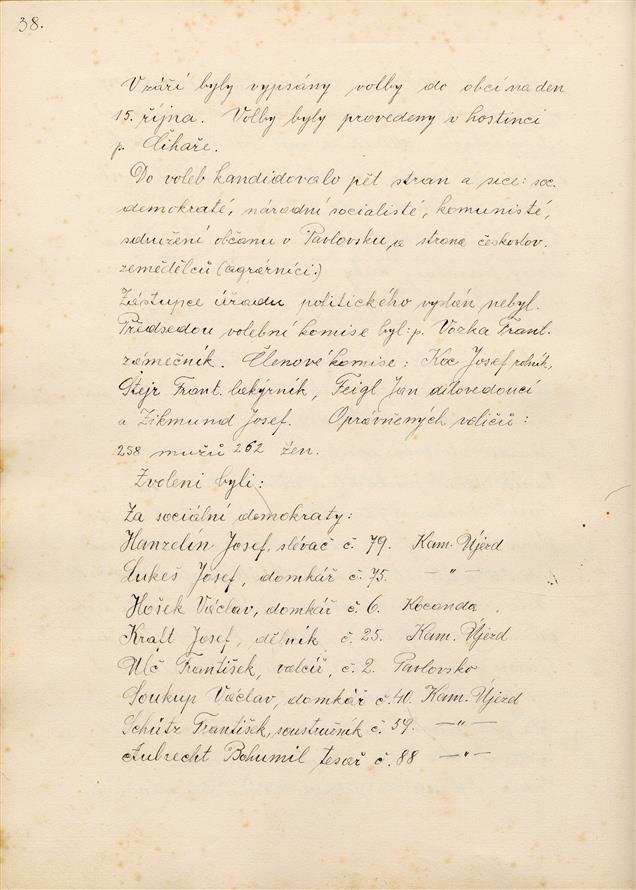 38.
V září byly vypsány volby do obcí na den
15. října. Volby byly provedeny v hostinci
p. Cihaře.
Do voleb kandidovalo pět stran a sice: soc.
demokraté, národní socialisté, komunisté,
sdružení občanu v Pavlovsku, a strana českoslov.
zemědělců (agrárníci.)
Zástupce úřadu politického vyslán nebyl.
Předsedou volební komise byl: p. Vozka Frant.
zámečník. Členové komise: Koc Josef rolník,
Štejr Frant. bakýrník, Feigl Jan dílovedoucí
a Zikmund Josef. Oprávněných voličů:
258 mužů 262 žen.
Zvoleni byli:
Za sociální demokraty:
Hanzelín Josef, slévač č. 79. Kam. Újezd
Lukeš Josef, domkář č. 75. —"—
Hošek Václav, domkář č. 6. Kocanda.
Kraft Josef, dělník č. 25. Kam. Újezd
Ulč František, valcíř, č. 2. Pavlovsko
Soukup Václav, domkář č. 40. Kam. Újezd
Schütz František, soustružník č. 59. —"—
Aubrecht Bohumil tesař č. 88 —"—